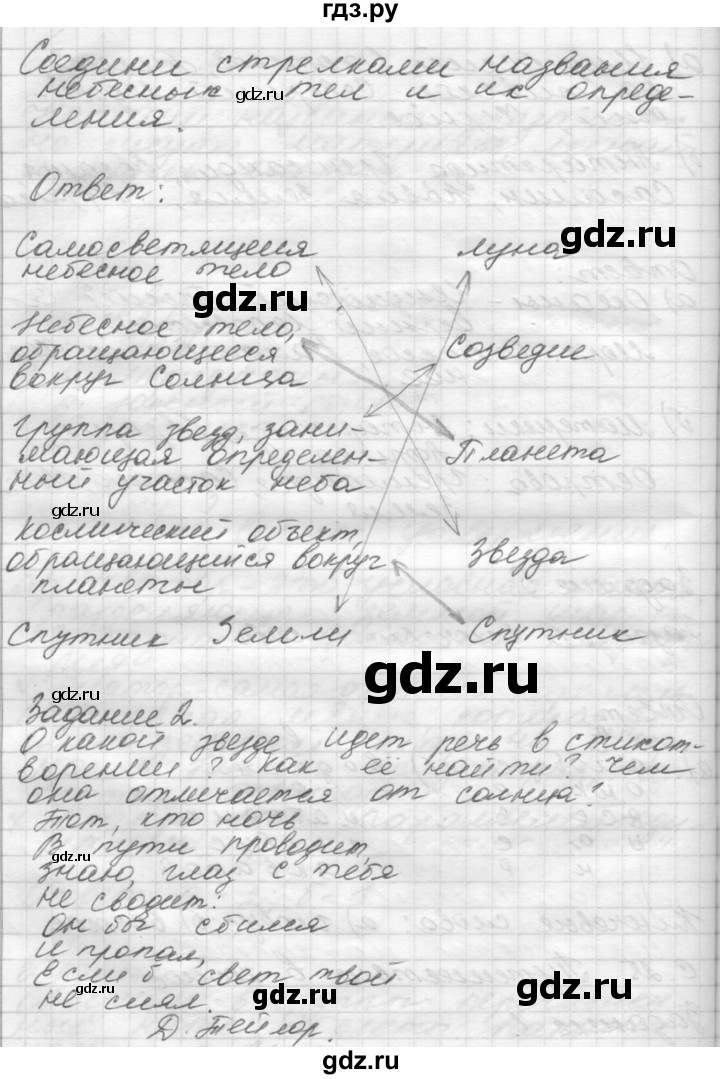 гдз.ру
Соедини стрелками названия
небесных тел и их опреде-
ления.
gdz.ru
Ответ:
Самосветящееся
небесное тело
Луна
gdz.ru
gdz.ru
Небесное тело,
обращающееся
вокруг Солнца
Созведие
Группа звезд, зани-
мающая определен-
ный участок неба
Планета
gdz.ru
Космический объект,
обращающийся вокруг
планеты
Звезда
Спутник Земли
Спутник
gdz.ru
gdz.ru
Задание 2.
О какой звезде идет речь в стихот-
ворении? Как её найти? Чем
она отличается от солнца?
Тот, кто ночь
В пути проводит,
gdz.ru
Знаю, глаз с тебя
не сводит:
Он бы сбился
и пропал,
Если б свет твой
не сиял.
gdz.ru
gdz.ru
gdz.ru
Д. Тейлор.
gdz.ru